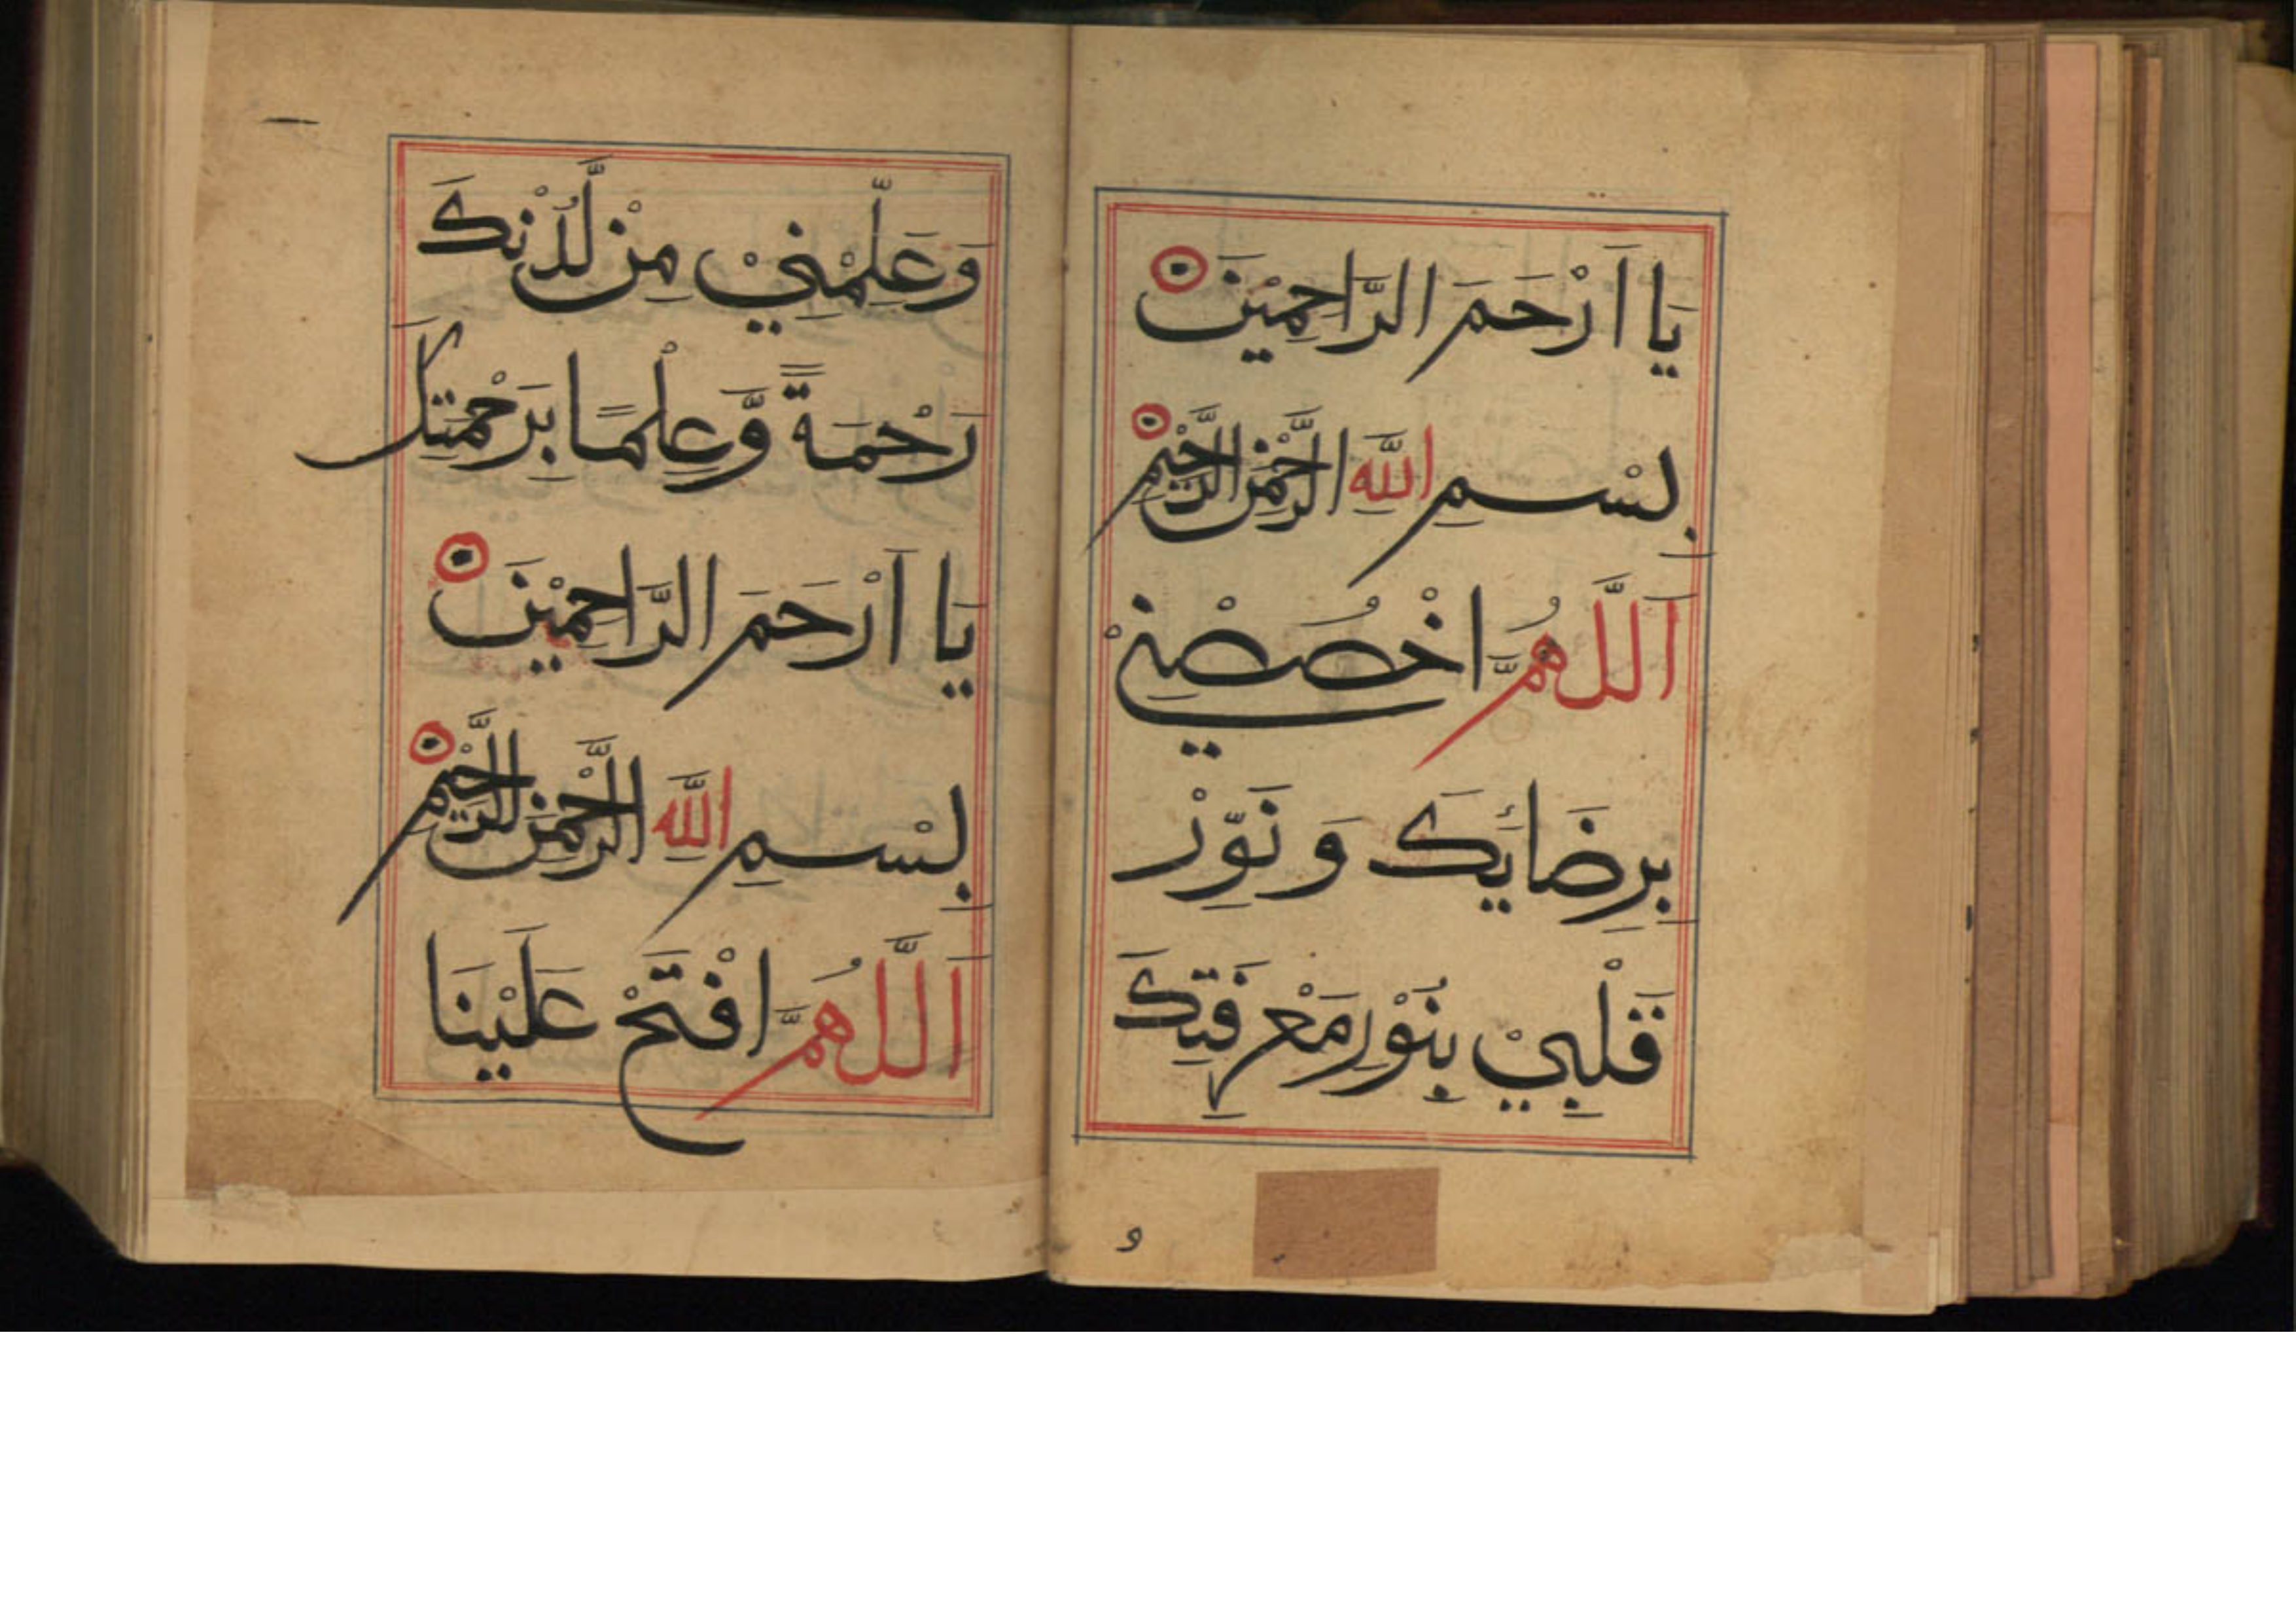 يَا اَرْحَمَ الرَّاحِمِيْنَ
بِسْمِ اللَّهِ الرَّحْمٰنِ الرَّحِيْمِ
اَللَّهُمَّ اخْصُصْنِيْ
بِرِضَائِكَ وَ نَوِّرْ
قَلْبِيْ بِنُوْرِ مَعْرِفَتِكَ
و
وَعَلِّمْنِيْ مِنْ لَّدُنْكَ
رَحْمَةً وَّعِلْمًا بِرَحْمَتِكَ
يَا اَرْحَمَ الرَّاحِمِيْنَ
بِسْمِ اللَّهِ الرَّحْمٰنِ الرَّحِيْمِ
اَللَّهُمَّ افْتَحْ عَلَيْنَا